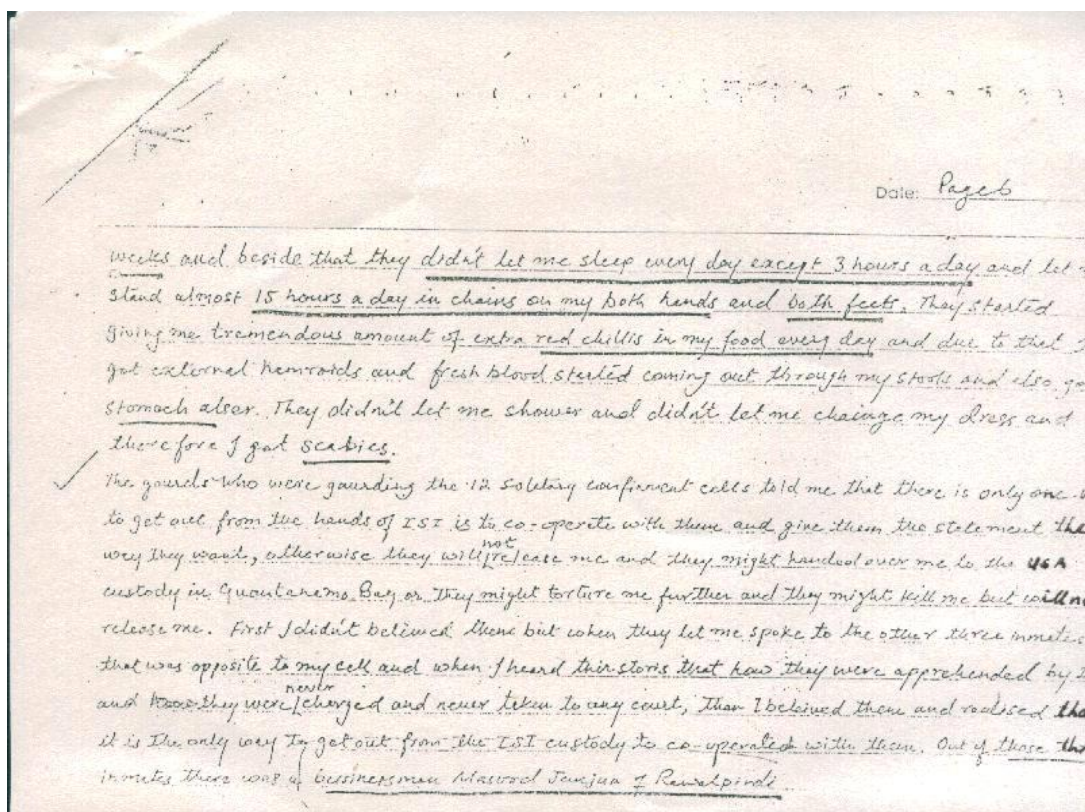 Date: Page 6
weeks and beside that they didn't let me sleep every day except 3 hours a day and let
stand almost 15 hours a day in chains on my both hands and both feets. They started
giving me tremendous amount of extra red chillis in my food every day and due to that I
got external hemroids and fresh blood started coming out through my stools and also
stomach alser. They didn't let me shower and didn't let me chainge my dress and
therefore I got scabies.
The gaurds who were gaurding the 12 soletary confinment cells told me that there is only one
to get out from the hands of ISI is to co-operate with them and give them the statement the
way they want, otherwise they will not release me and they might handod over me to the USA
custody in Guantanemo Bay or they might torture me further and they might kill me but will
release me. First I didn't believed them but when they let me spoke to the other three inmates
that was opposite to my cell and when I heard thir storis that how they were apprehended by
and they were never charged and never teken to any court, then I belived them and realised
it is the only way to get out from the ISI custody to co-operated with them. Out of those
inmates there was a bussinesmen Masood Janjua of Rawalpindi